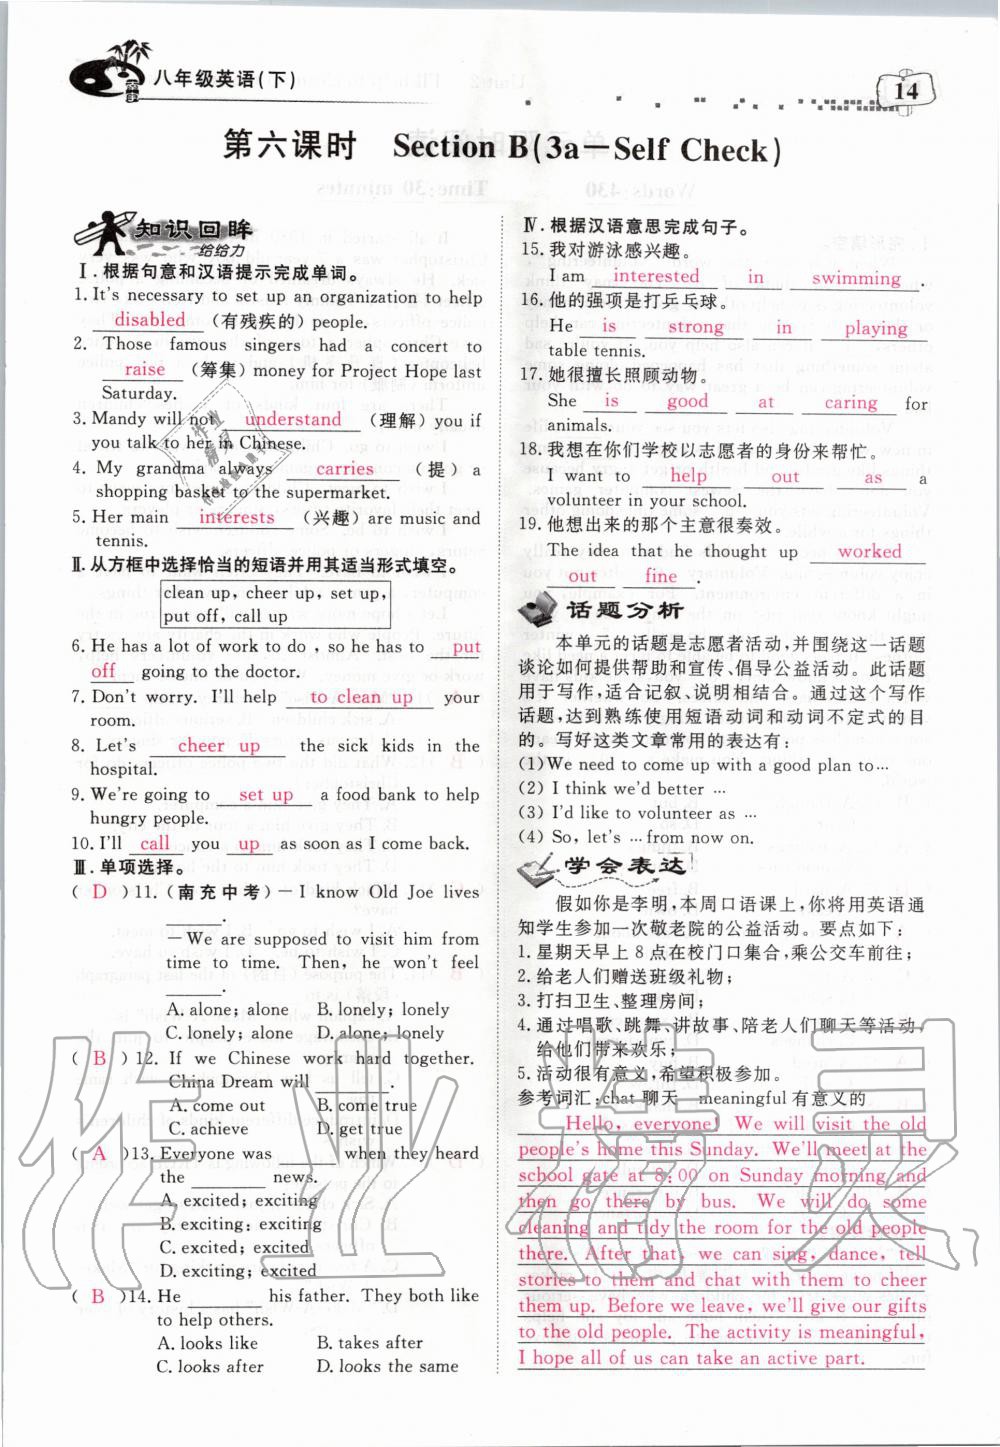 八年级英语(下)
14
第六课时 Section B(3a-Self Check)
知识回眸
给给力
Ⅰ.根据句意和汉语提示完成单词。
1. It's necessary to set up an organization to help
disabled (有残疾的) people.
2. Those famous singers had a concert to
raise (筹集) money for Project Hope last
Saturday.
3. Mandy will not understand (理解) you if
you talk to her in Chinese.
4. My grandma always carries (提) a
shopping basket to the supermarket.
5. Her main interests (兴趣) are music and
tennis.
Ⅱ.从方框中选择恰当的短语并用其适当形式填空。
clean up, cheer up, set up,
put off, call up
6. He has a lot of work to do , so he has to put
off going to the doctor.
7. Don't worry. I'll help to clean up your
room.
8. Let's cheer up the sick kids in the
hospital.
9. We're going to set up a food bank to help
hungry people.
10. I'll call you up as soon as I come back.
Ⅲ.单项选择。
( D )11. (南充中考) —I know Old Joe lives
______.
—We are supposed to visit him from
time to time. Then, he won't feel
______.
A. alone; alone B. lonely; lonely
C. lonely; alone D. alone; lonely
( B )12. If we Chinese work hard together.
China Dream will ______.
A. come out B. come true
C. achieve D. get true
( A )13. Everyone was ______ when they heard
the ______ news.
A. excited; exciting
B. exciting; exciting
C. excited; excited
D. exciting; excited
( B )14. He ______ his father. They both like
to help others.
A. looks like B. takes after
C. looks after D. looks the same
Ⅳ.根据汉语意思完成句子。
15. 我对游泳感兴趣。
I am interested in swimming
16. 他的强项是打乒乓球。
He is strong in playing
table tennis.
17. 她很擅长照顾动物。
She is good at caring for
animals.
18. 我想在你们学校以志愿者的身份来帮忙。
I want to help out as a
volunteer in your school.
19. 他想出来的那个主意很奏效。
The idea that he thought up worked
out fine .
话题分析
本单元的话题是志愿者活动,并围绕这一话题
谈论如何提供帮助和宣传、倡导公益活动。此话题
用于写作,适合记叙、说明相结合。通过这个写作
话题,达到熟练使用短语动词和动词不定式的目
的。写好这类文章常用的表达有:
(1) We need to come up with a good plan to…
(2) I think we'd better …
(3) I'd like to volunteer as …
(4) So, let's …from now on.
学会表达
假如你是李明,本周口语课上,你将用英语通
知学生参加一次敬老院的公益活动。要点如下:
1. 星期天早上8点在校门口集合,乘公交车前往;
2. 给老人们赠送班级礼物;
3. 打扫卫生、整理房间;
4. 通过唱歌、跳舞、讲故事、陪老人们聊天等活动,
给他们带来欢乐;
5. 活动很有意义,希望积极参加。
参考词汇:chat 聊天 meaningful 有意义的
Hello, everyone! We will visit the old
people's home this Sunday. We'll meet at the
school gate at 8:00 on Sunday morning and
then go there by bus. We will do some
cleaning and tidy the room for the old people
there. After that, we can sing, dance, tell
stories to them and chat with them to cheer
them up. Before we leave, we'll give our gifts
to the old people. The activity is meaningful,
I hope all of us can take an active part.
作业精灵